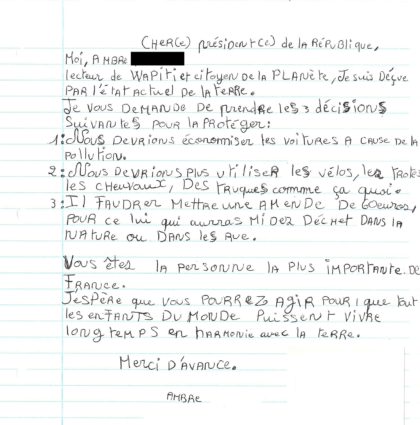 CHER(e) président(e) de la République,
Moi, AMBRE
lecteur de WAPITI et citoyen de la PLANète, Je suis Déçue
PAR l'état actuel de la terre.
Je vous DEMANDE DE prendre les 3 décisions
Suivantes pour la protéger:
1: Nous DEVRIONS économiser les voitures A CAUSE De la
Pollution.
2: Nous DEVRIONS PLUS utiliser les vélos, les
les chevaux, Des truques comme ça quoi.
3: Il FAUDRER Mettre une AMENDE De 60euros,
POUR ce lui qui aurras Mi Dez Déchet DANS la
NATURE ou DANS les Rue.
Vous êtes la personne la Plus importante De
FRANCE.
J'espère que vous POURREZ AGIR POUR que tout
les enfANTS DU MonDe Puissent vivre
long temps en HARMONIE avec la terre.
Merci D'AVANCE.
AMBRE